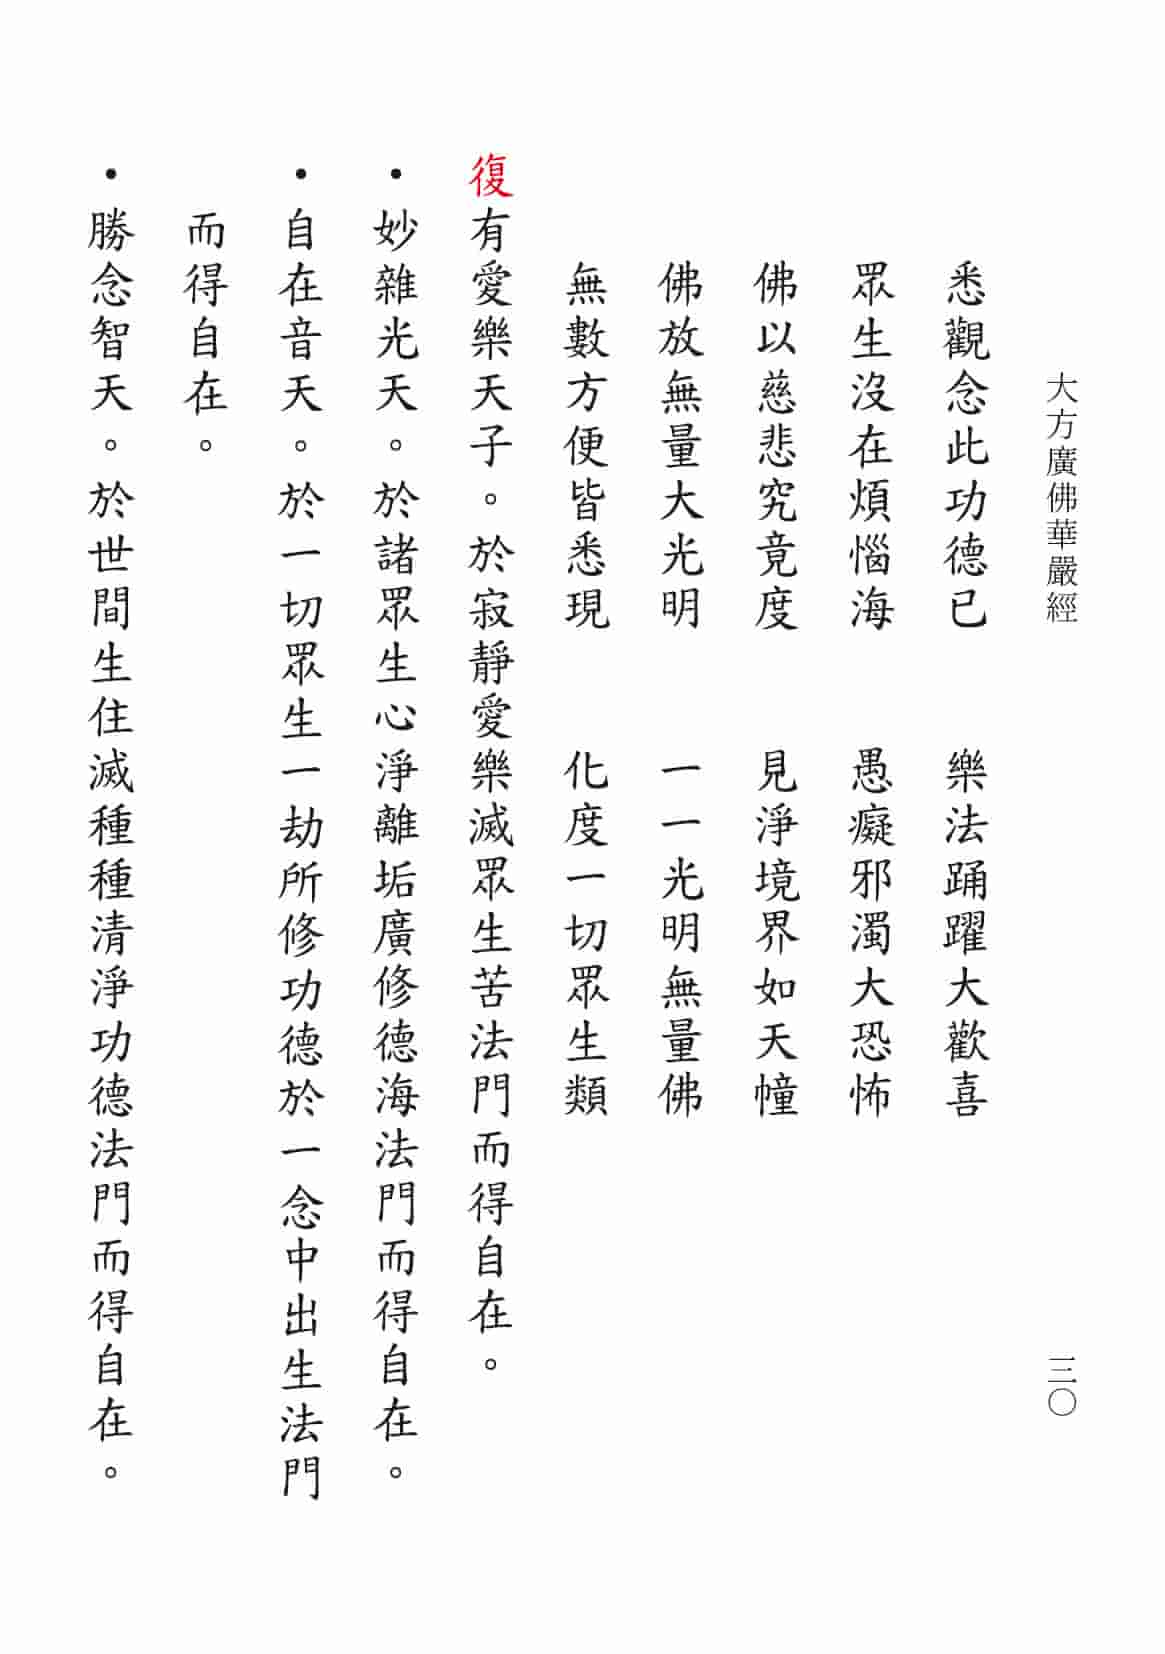 大方廣佛華嚴經
三〇
悉觀念此功德已　樂法踊躍大歡喜
眾生沒在煩惱海　愚癡邪濁大恐怖
佛以慈悲究竟度　見淨境界如天幢
佛放無量大光明　一一光明無量佛
無數方便皆悉現　化度一切眾生類
復有愛樂天子。於寂靜愛樂滅眾生苦法門而得自在。
•妙雜光天。於諸眾生心淨離垢廣修德海法門而得自在。
•自在音天。於一切眾生一劫所修功德於一念中出生法門
而得自在。
•勝念智天。於世間生住滅種種清淨功德法門而得自在。